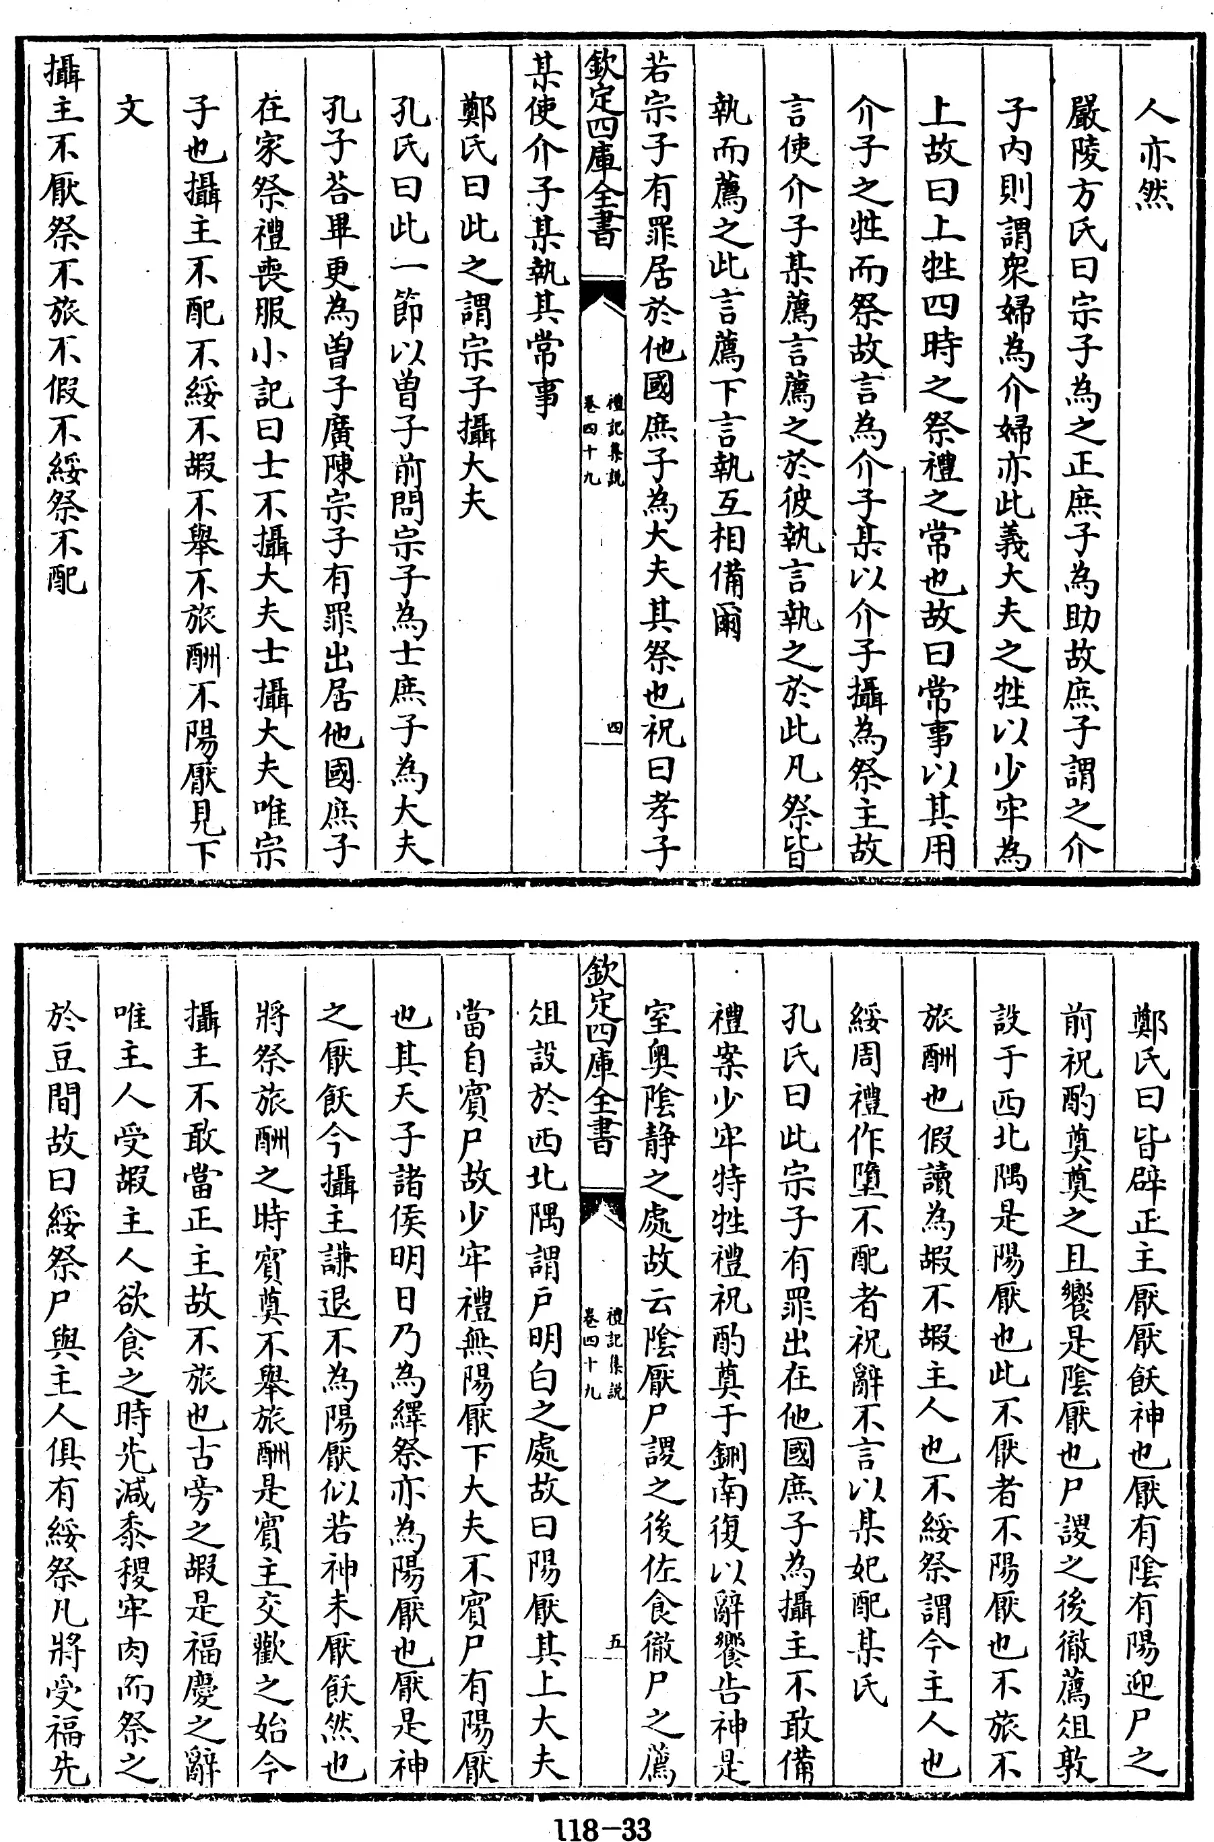 人亦然
嚴陵方氏曰宗子為之正庶子為助故庶子謂之介
子内則謂衆婦為介婦亦此義大夫之牲以少牢為
上故曰上牲四時之祭禮之常也故曰常事以其用
介子之牲而祭故言為介子某以介子攝為祭主故
言使介子某薦言薦之於彼執言執之於此凡祭皆
執而薦之此言薦下言執互相備爾
若宗子有罪居於他國庶子為大夫其祭也祝曰孝子
欽定四庫全書
禮記集說
卷四十九
四
某使介子某執其常事
鄭氏曰此之謂宗子攝大夫
孔氏曰此一節以曾子前問宗子為士庶子為大夫
孔子荅畢更為曾子廣陳宗子有罪出居他國庶子
在家祭禮喪服小記曰士不攝大夫士攝大夫唯宗
子也攝主不配不綏不嘏不舉不旅酬不陽厭見下
文
攝主不厭祭不旅不假不綏祭不配
鄭氏曰皆辟正主厭厭飫神也厭有陰有陽迎尸之
前祝酌奠奠之且饗是陰厭也尸謖之後徹薦俎敦
設于西北隅是陽厭也此不厭者不陽厭也不旅不
旅酬也假讀為嘏不嘏主人也不綏祭謂今主人也
綏周禮作墮不配者祝辭不言以某妃配某氏
孔氏曰此宗子有罪出在他國庶子為攝主不敢備
禮案少牢特牲禮祝酌奠于鉶南復以辭饗告神是
室奥陰静之處故云陰厭尸謖之後佐食徹尸之薦
欽定四庫全書
禮記集說
卷四十九
五
俎設於西北隅謂戶明白之處故曰陽厭其上大夫
當自賓尸故少牢禮無陽厭下大夫不賓尸有陽厭
也其天子諸侯明日乃為繹祭亦為陽厭也厭是神
之厭飫今攝主謙退不為陽厭似若神未厭飫然也
將祭旅酬之時賓奠不舉旅酬是賓主交歡之始今
攝主不敢當正主故不旅也古旁之嘏是福慶之辭
唯主人受嘏主人欲食之時先減黍稷牢肉而祭之
於豆間故曰綏祭尸與主人俱有綏祭凡將受福先
118-33